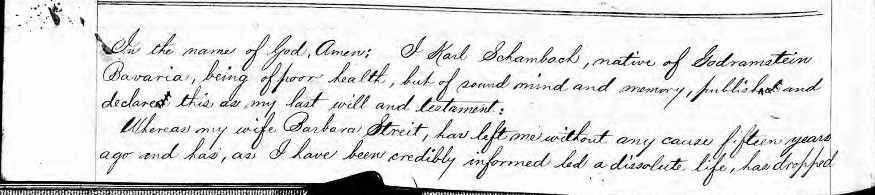 In the name of God, Amen: I Karl Schambach, native of Godramstein
Bavaria, being of poor health, but of sound mind and memory, publish and
declare this as my last will and testament:
Whereas my wife Barbara Streit, has left me without any cause fifteen years
ago and has, as I have been credibly informed led a dissolute life, has dropped